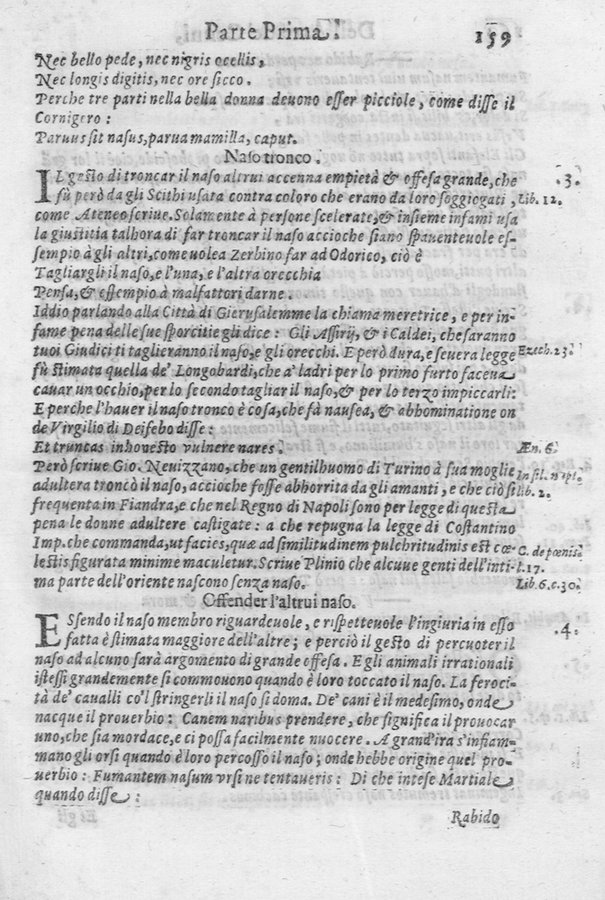 Parte Prima. 159
Nec bello pede, nec nigris ocellis,
Nec longis digitis, nec ore sicco.
Perche tre parti nella bella donna deuono esser picciole, come disse il
Cornigero:
Paruus sit nasus, parua mamilla, caput.
Naso tronco.
IL gesto di troncar il naso altrui accenna empietà & offesa grande, che .3.
fù però da gli Scithi usata contra coloro che erano da loro soggiogati, Lib. 12.
come Ateneo scriue. Solamente à persone scelerate, & insieme infami usa
la giustitia talhora di far troncar il naso accioche siano spauenteuole es-
sempio à gli altri, come volea Zerbino far ad Odorico, ciò è
Tagliargli il naso, e l'una, e l'altra orecchia
Pensa, & essempio à malfattori darne.
Iddio parlando alla Città di Gierusalemme la chiama meretrice, e per in-
fame pena delle sue sporcitie gli dice: Gli Assirij, & i Caldei, che saranno
tuoi Giudici ti taglieranno il naso, e gli orecchi. E però dura, e seuera legge Ezech. 23.
fù stimata quella de' Longobardi, che a' ladri per lo primo furto faceua
cauar un occhio, per lo secondo tagliar il naso, & per lo terzo impiccarli:
E perche l'hauer il naso tronco è cosa, che fà nausea, & abbominatione on
de Virgilio di Deifebo disse:
Et truncas inhonesto vulnere nares. Æn. 6.
Però scriue Gio. Neuizzano, che un gentilhuomo di Turino à sua moglie In sil. nupt.
adultera troncò il naso, accioche fosse abhorrita da gli amanti, e che ciò si lib. 2.
frequenta in Fiandra, e che nel Regno di Napoli sono per legge di questa
pena le donne adultere castigate: a che repugna la legge di Costantino
Imp. che commanda, ut facies, quæ ad similitudinem pulchritudinis est cœ C. de pœnis
lestis figurata minime maculetur. Scriue Plinio che alcune genti dell'inti- l. 17.
ma parte dell'oriente nascono senza naso. Lib. 6. c. 30.
Offender l'altrui naso.
ESsendo il naso membro riguardeuole, e rispetteuole l'ingiuria in esso
fatta è stimata maggiore dell'altre; e perciò il gesto di percuoter il .4.
naso ad alcuno sarà argomento di grande offesa. E gli animali irrationali
istessi grandemente si commouono quando è loro toccato il naso. La feroci-
tà de' caualli co'l stringerli il naso si doma. De' cani è il medesimo, onde
nacque il prouerbio: Canem naribus prendere, che significa il prouocar
uno, che sia mordace, e ci possa facilmente nuocere. A grand'ira s'infiam-
mano gli orsi quando è loro percosso il naso; onde hebbe origine quel pro-
uerbio: Fumantem nasum vrsi ne tentaueris: Di che intese Martiale
quando disse:
Rabido